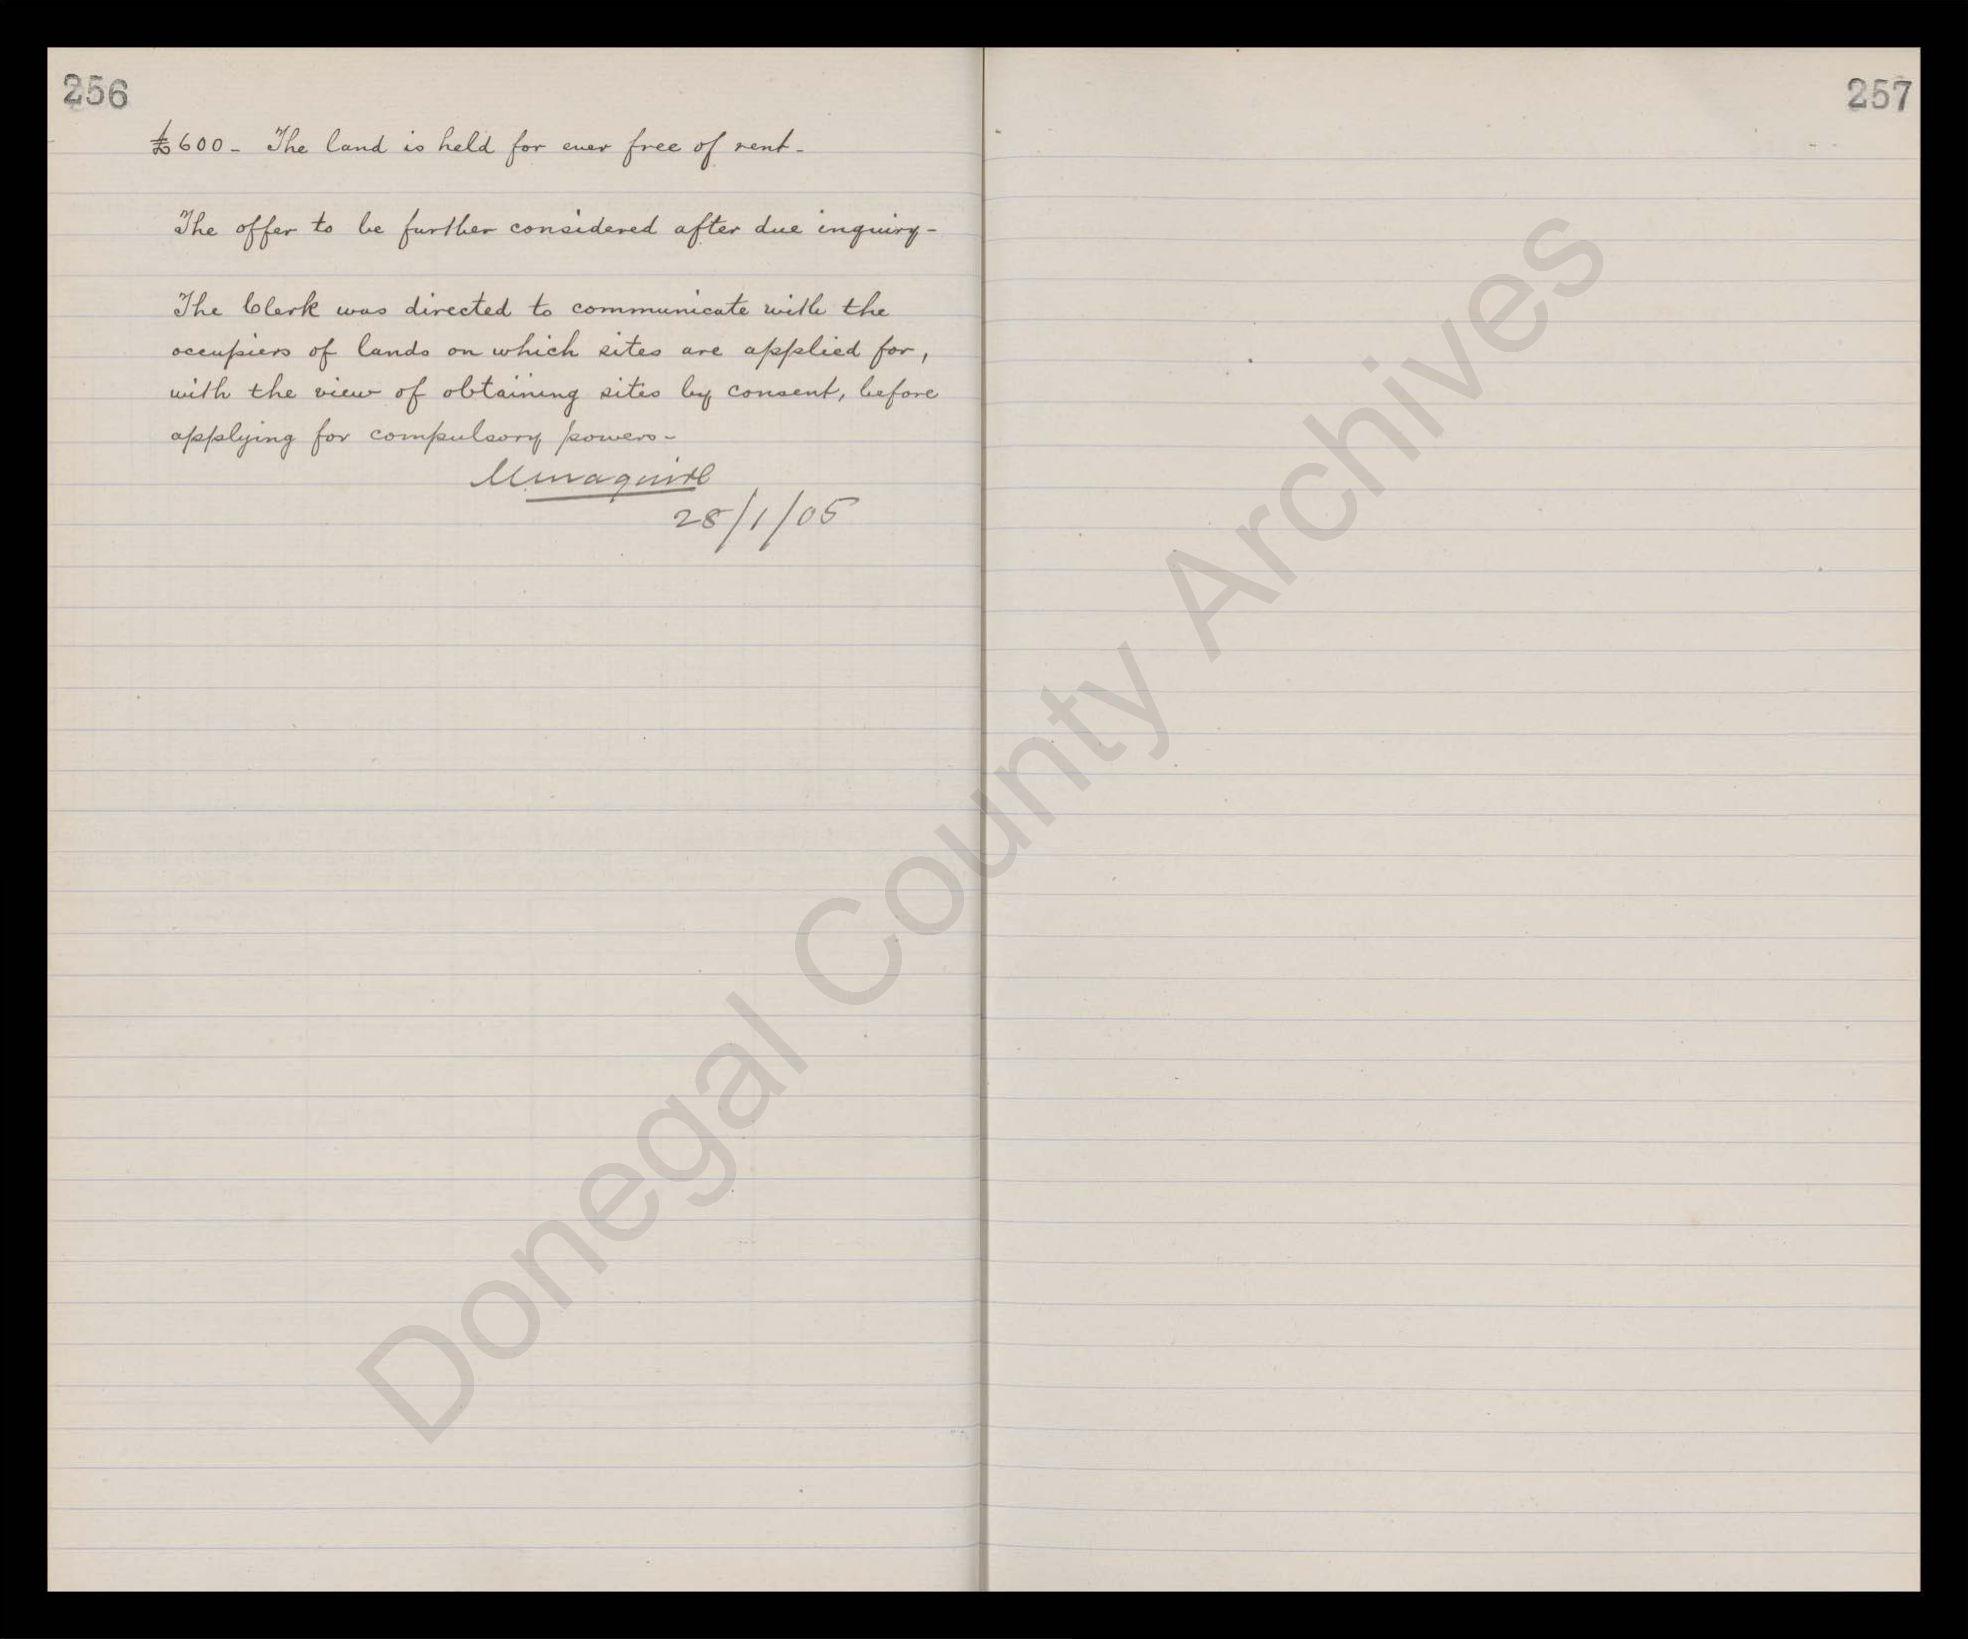 256
£600 - The land is held for ever free of rent -
The offer to be further considered after due inquiry -
The Clerk was directed to communicate with the
occupiers of lands on which sites are applied for,
with the view of obtaining sites by consent, before
applying for compulsory powers -
28/1/05
257
Donegal County Archives